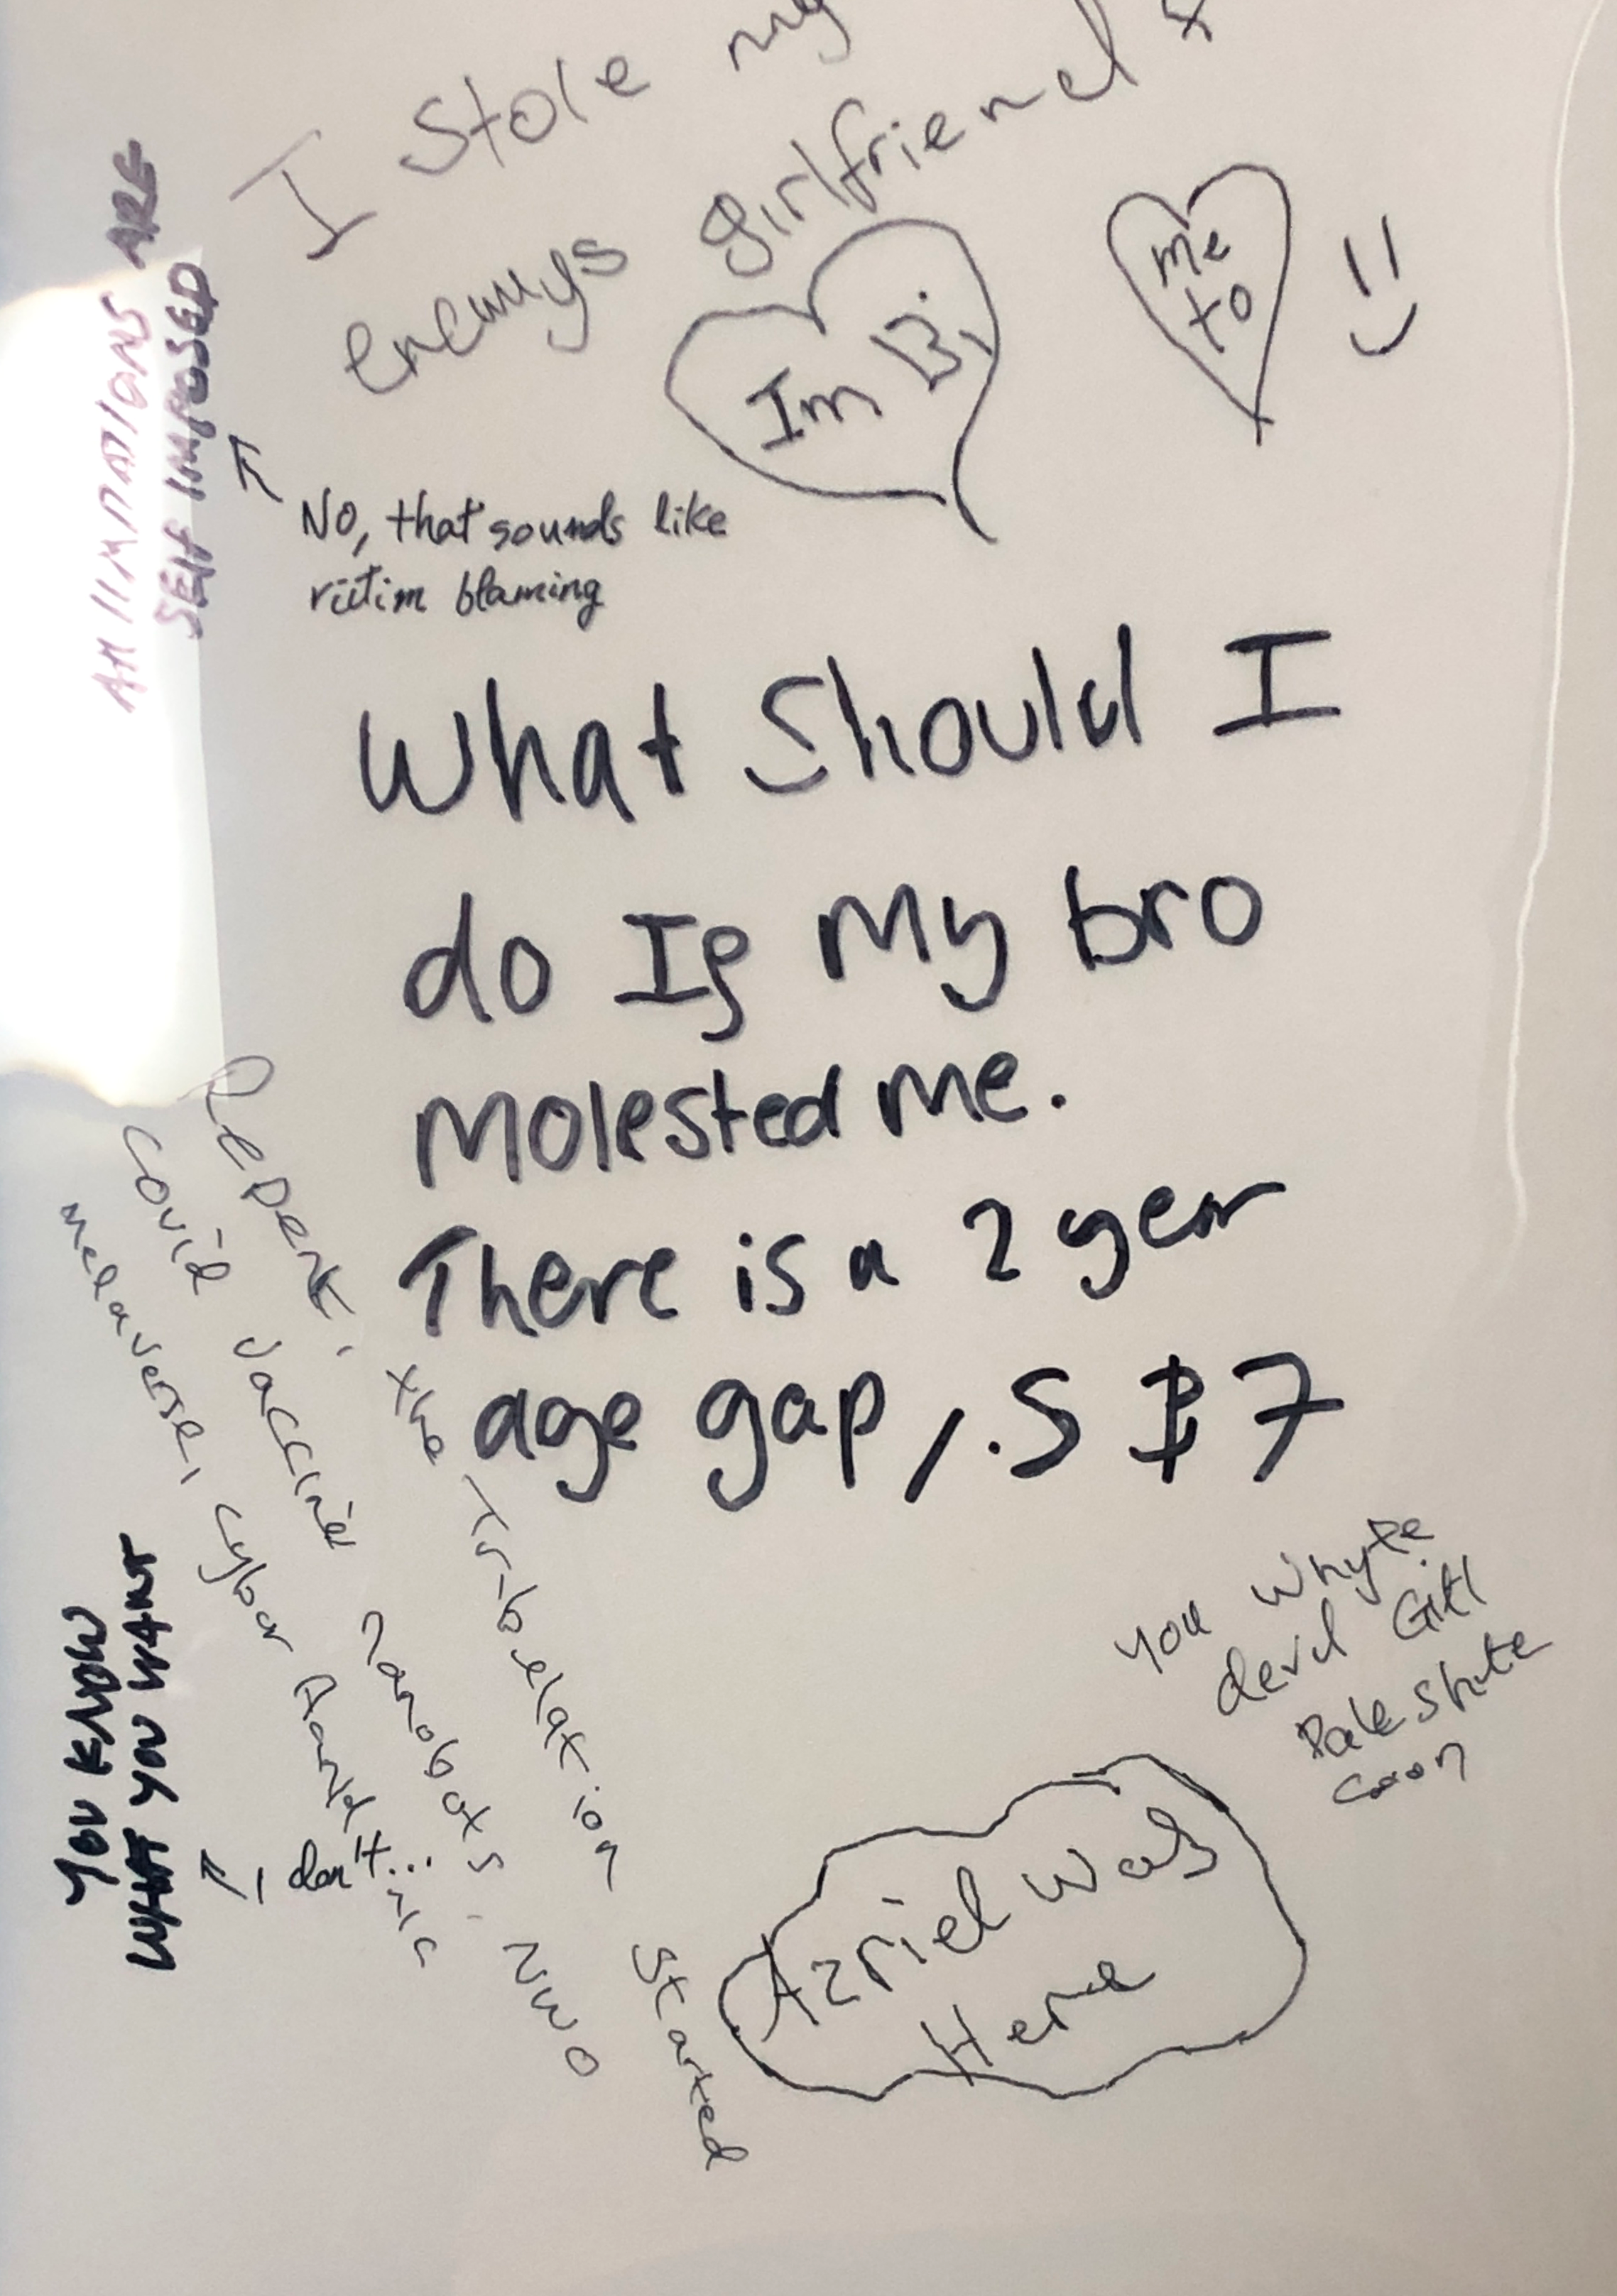 I stole my
enemys girlfriend
Im Bi
me
to
ARE
SELF IMPOSED
NO, that sounds like
victim blaming
What Should I
do If My bro
Molested me.
There is a 2 year
age gap, 5 & 7
Repent, the Tribelation started
covid vaccine nanobots. NWO
YOU KNOW
WHAT YOU WANT
I don't...
you whyte
devil
Pale
Azriel was
Here